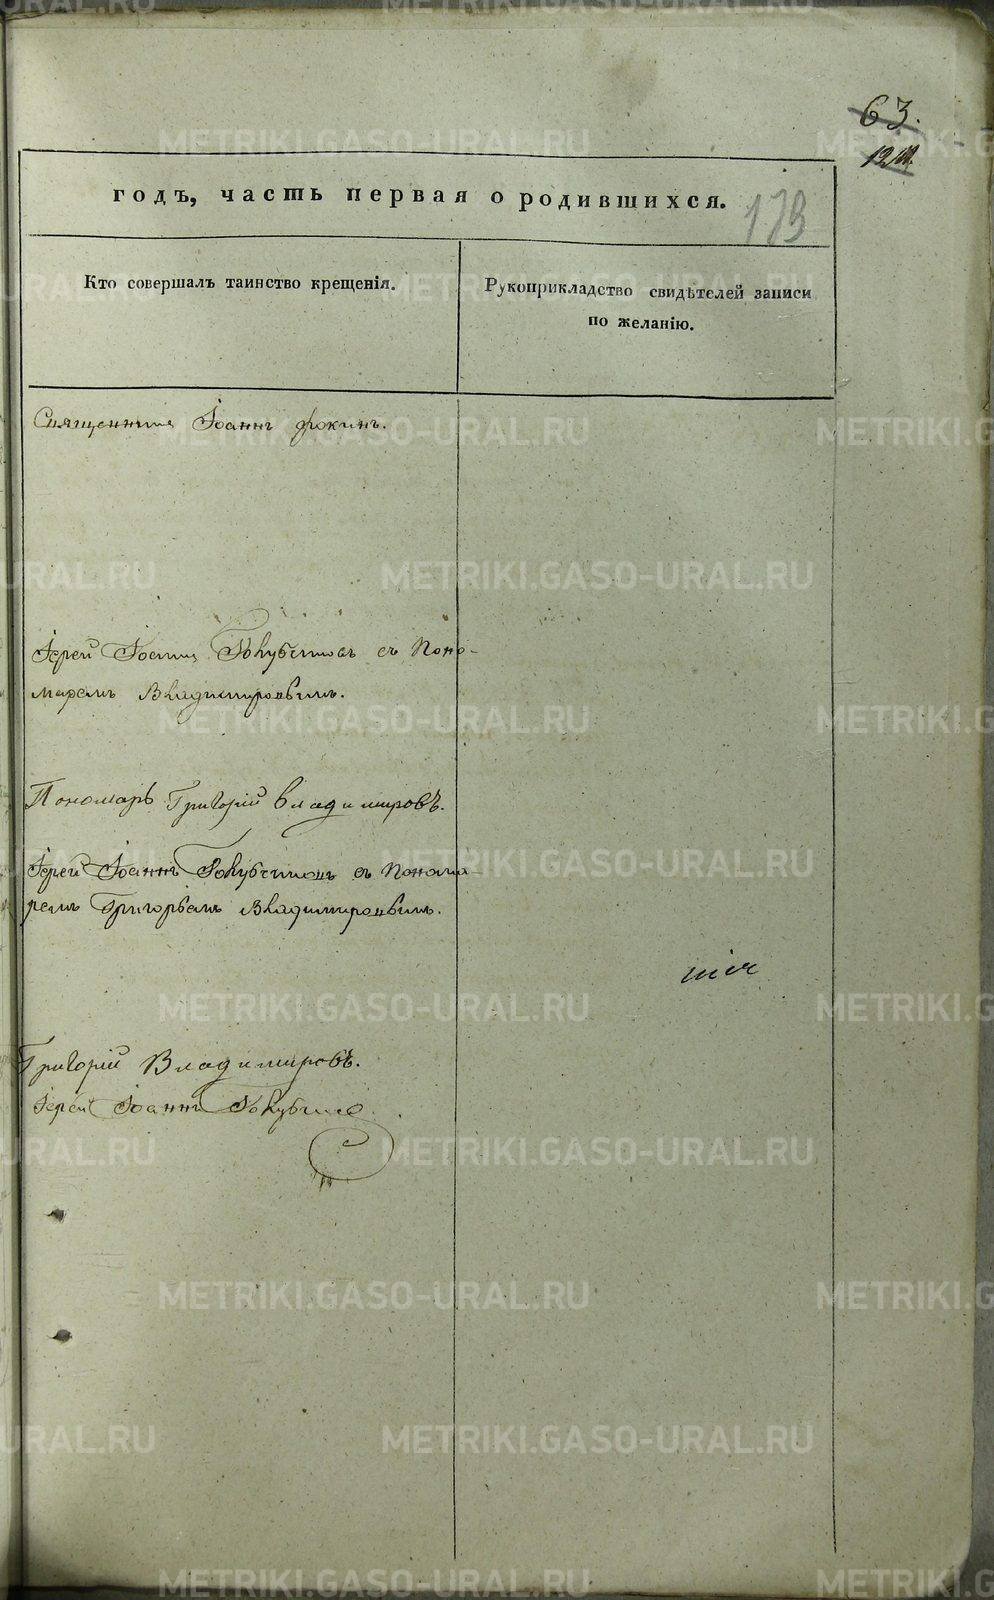 63.
годъ, часть первая о родившихся.
173
Кто совершалъ таинство крещенія.
Рукоприкладство свидѣтелей записи
по желанію.
Священникъ Іоаннъ Фокинъ.
Іерей Іоаннъ Голубчиковъ съ Поно-
маремъ Владимировымъ.
Пономарь Григорій Владимировъ.
Іерей Іоаннъ Голубчиковъ съ Понома-
ремъ Григорьемъ Владимировымъ.
Григорій Владимировъ.
Іерей Іоаннъ
METRIKI.GASO-URAL.RU